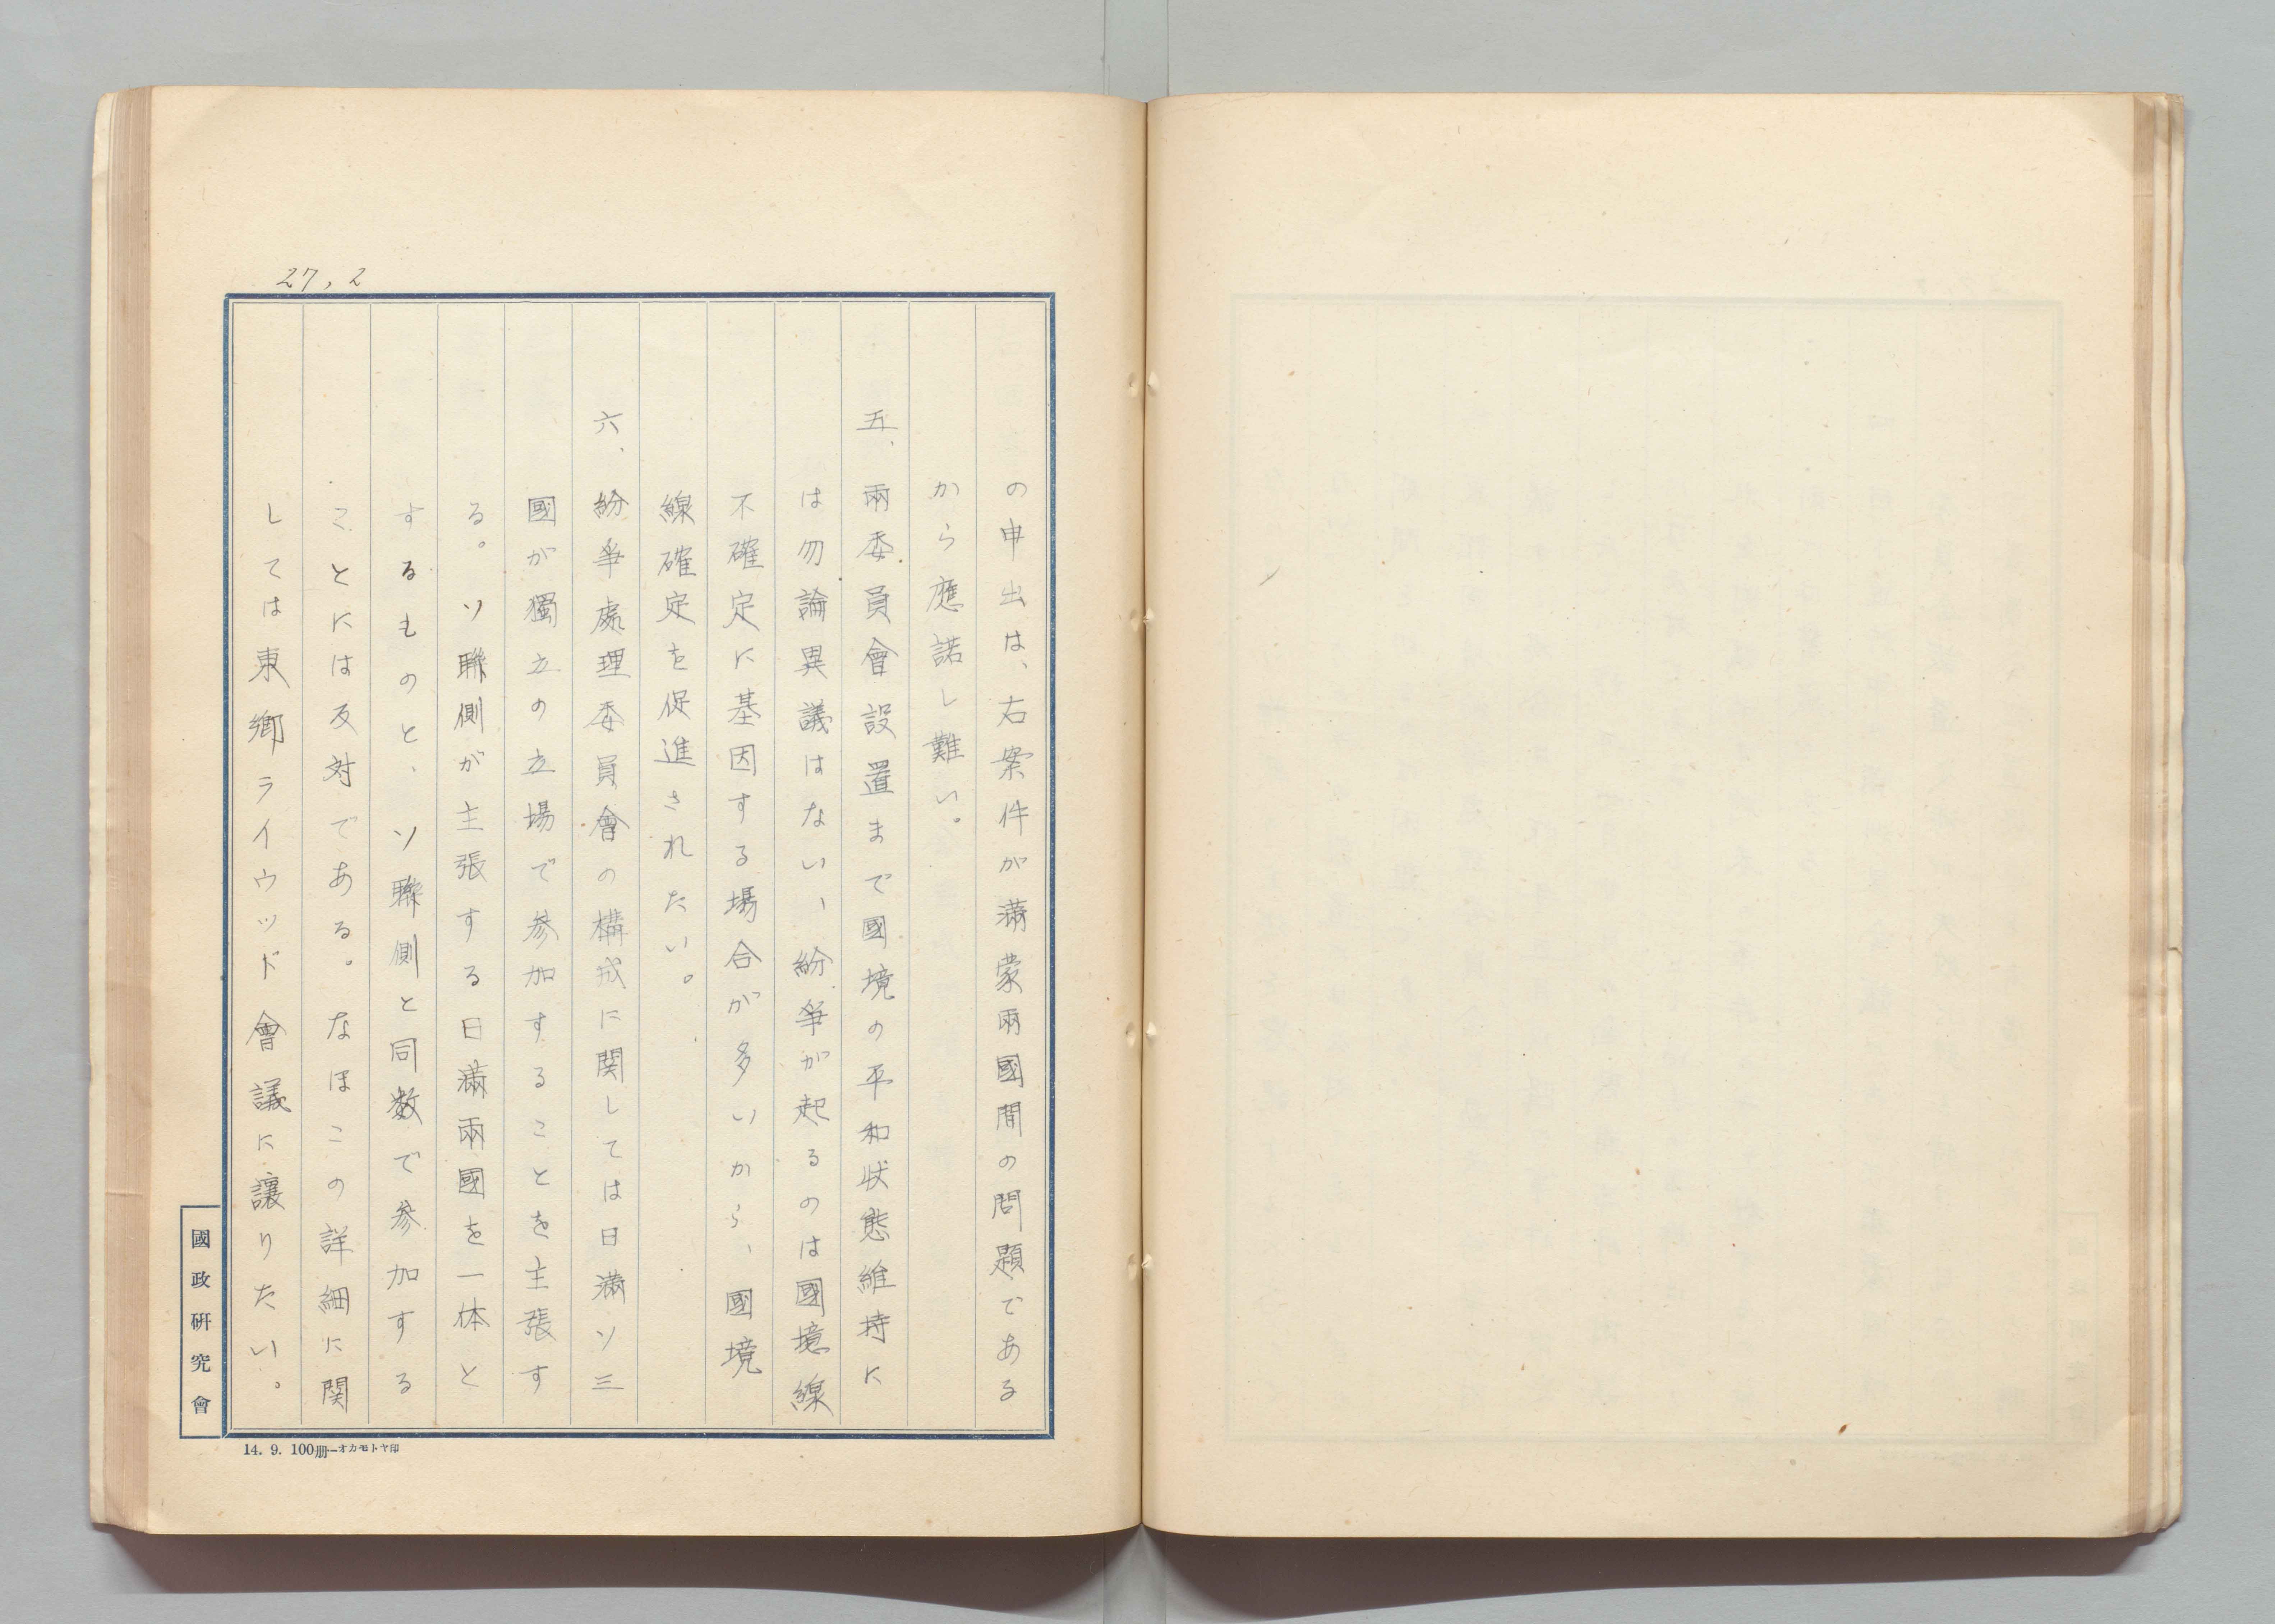 27,2
の申出は、右案件が滿蒙兩國間の問題である
から應諾し難い。
五、兩委員會設置まで國境の平和状態維持に
は勿論異議はない、紛爭が起るのは國境線
不確定に基因する場合が多いから、國境
線確定を促進されたい。
六、紛爭處理委員會の構成に関しては日滿ソ三
國が獨立の立場で参加することを主張す
る。ソ聯側が主張する日滿兩國を一体と
するものと、ソ聯側と同数で参加する
ことには反対である。なほこの詳細に関
しては東郷ライウッド會議に讓りたい。
國政研究會
14. 9. 100册—オカモトヤ印